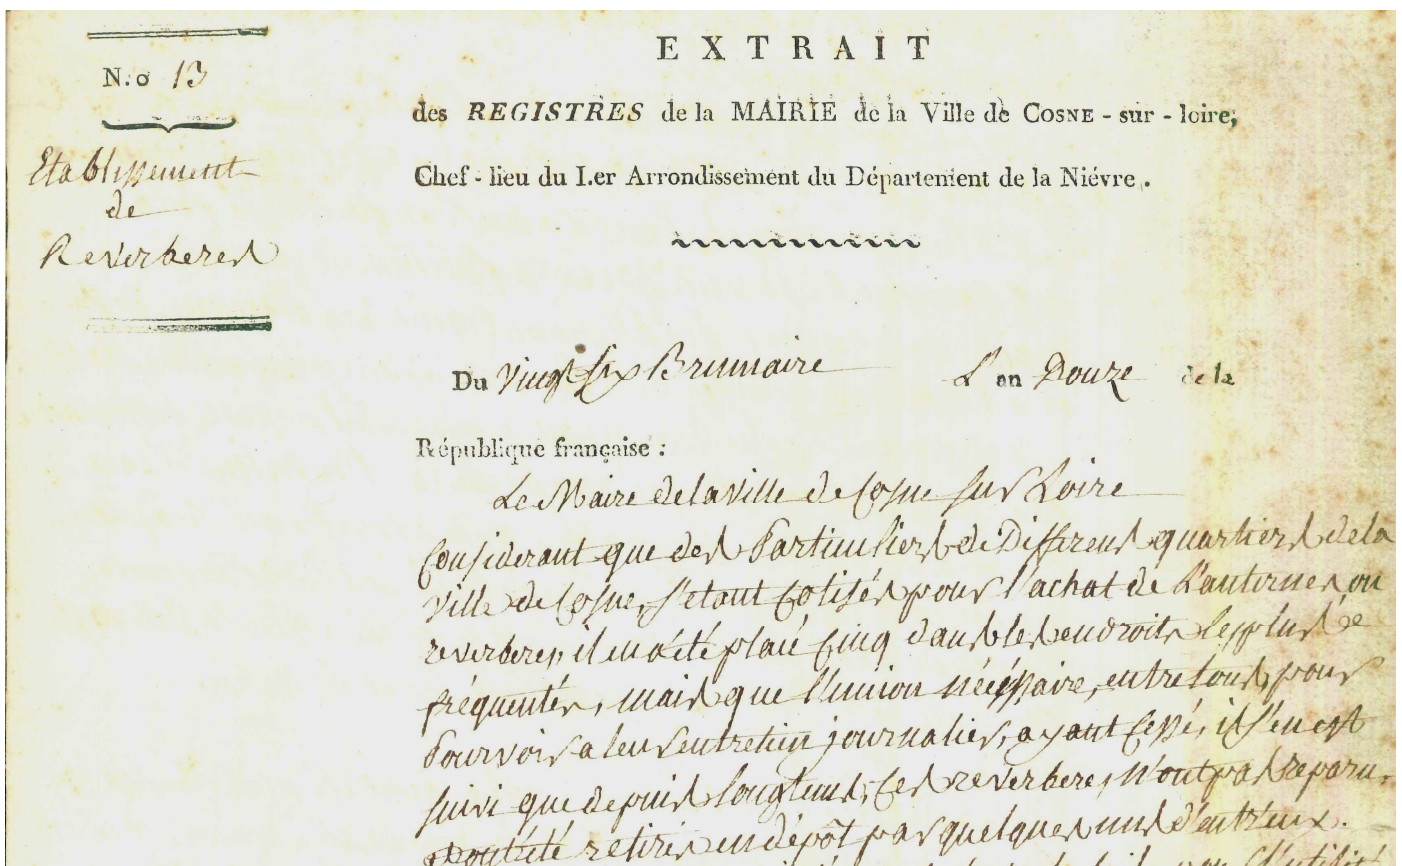 N.o 13
Etablissement
de
Reverberes
EXTRAIT
des REGISTRES de la MAIRIE de la Ville de COSNE - sur - loire,
Chef - lieu du I.er Arrondissement du Département de la Niévre.
Du Vingt Six Brumaire L'an Douze de la
République française :
Le Maire de la Ville de Cosne sur Loire
Considerant que des Particuliers de Differens quartiers de la
Ville de Cosne, s'etant Cotisés pour l'achat de Lanternes ou
reverberes, il en a été placé Cinq dans les endroits les plus
fréquentés, mais que l'union nécéssaire, entre tous, pour
Pourvoir a leur entretien journalier, ayant Cessé, il s'en est
suivi que depuis longtems, Ces reverberes, N'ont pas reparu,
ont été retirés en dépôt par quelques uns d'entreux.